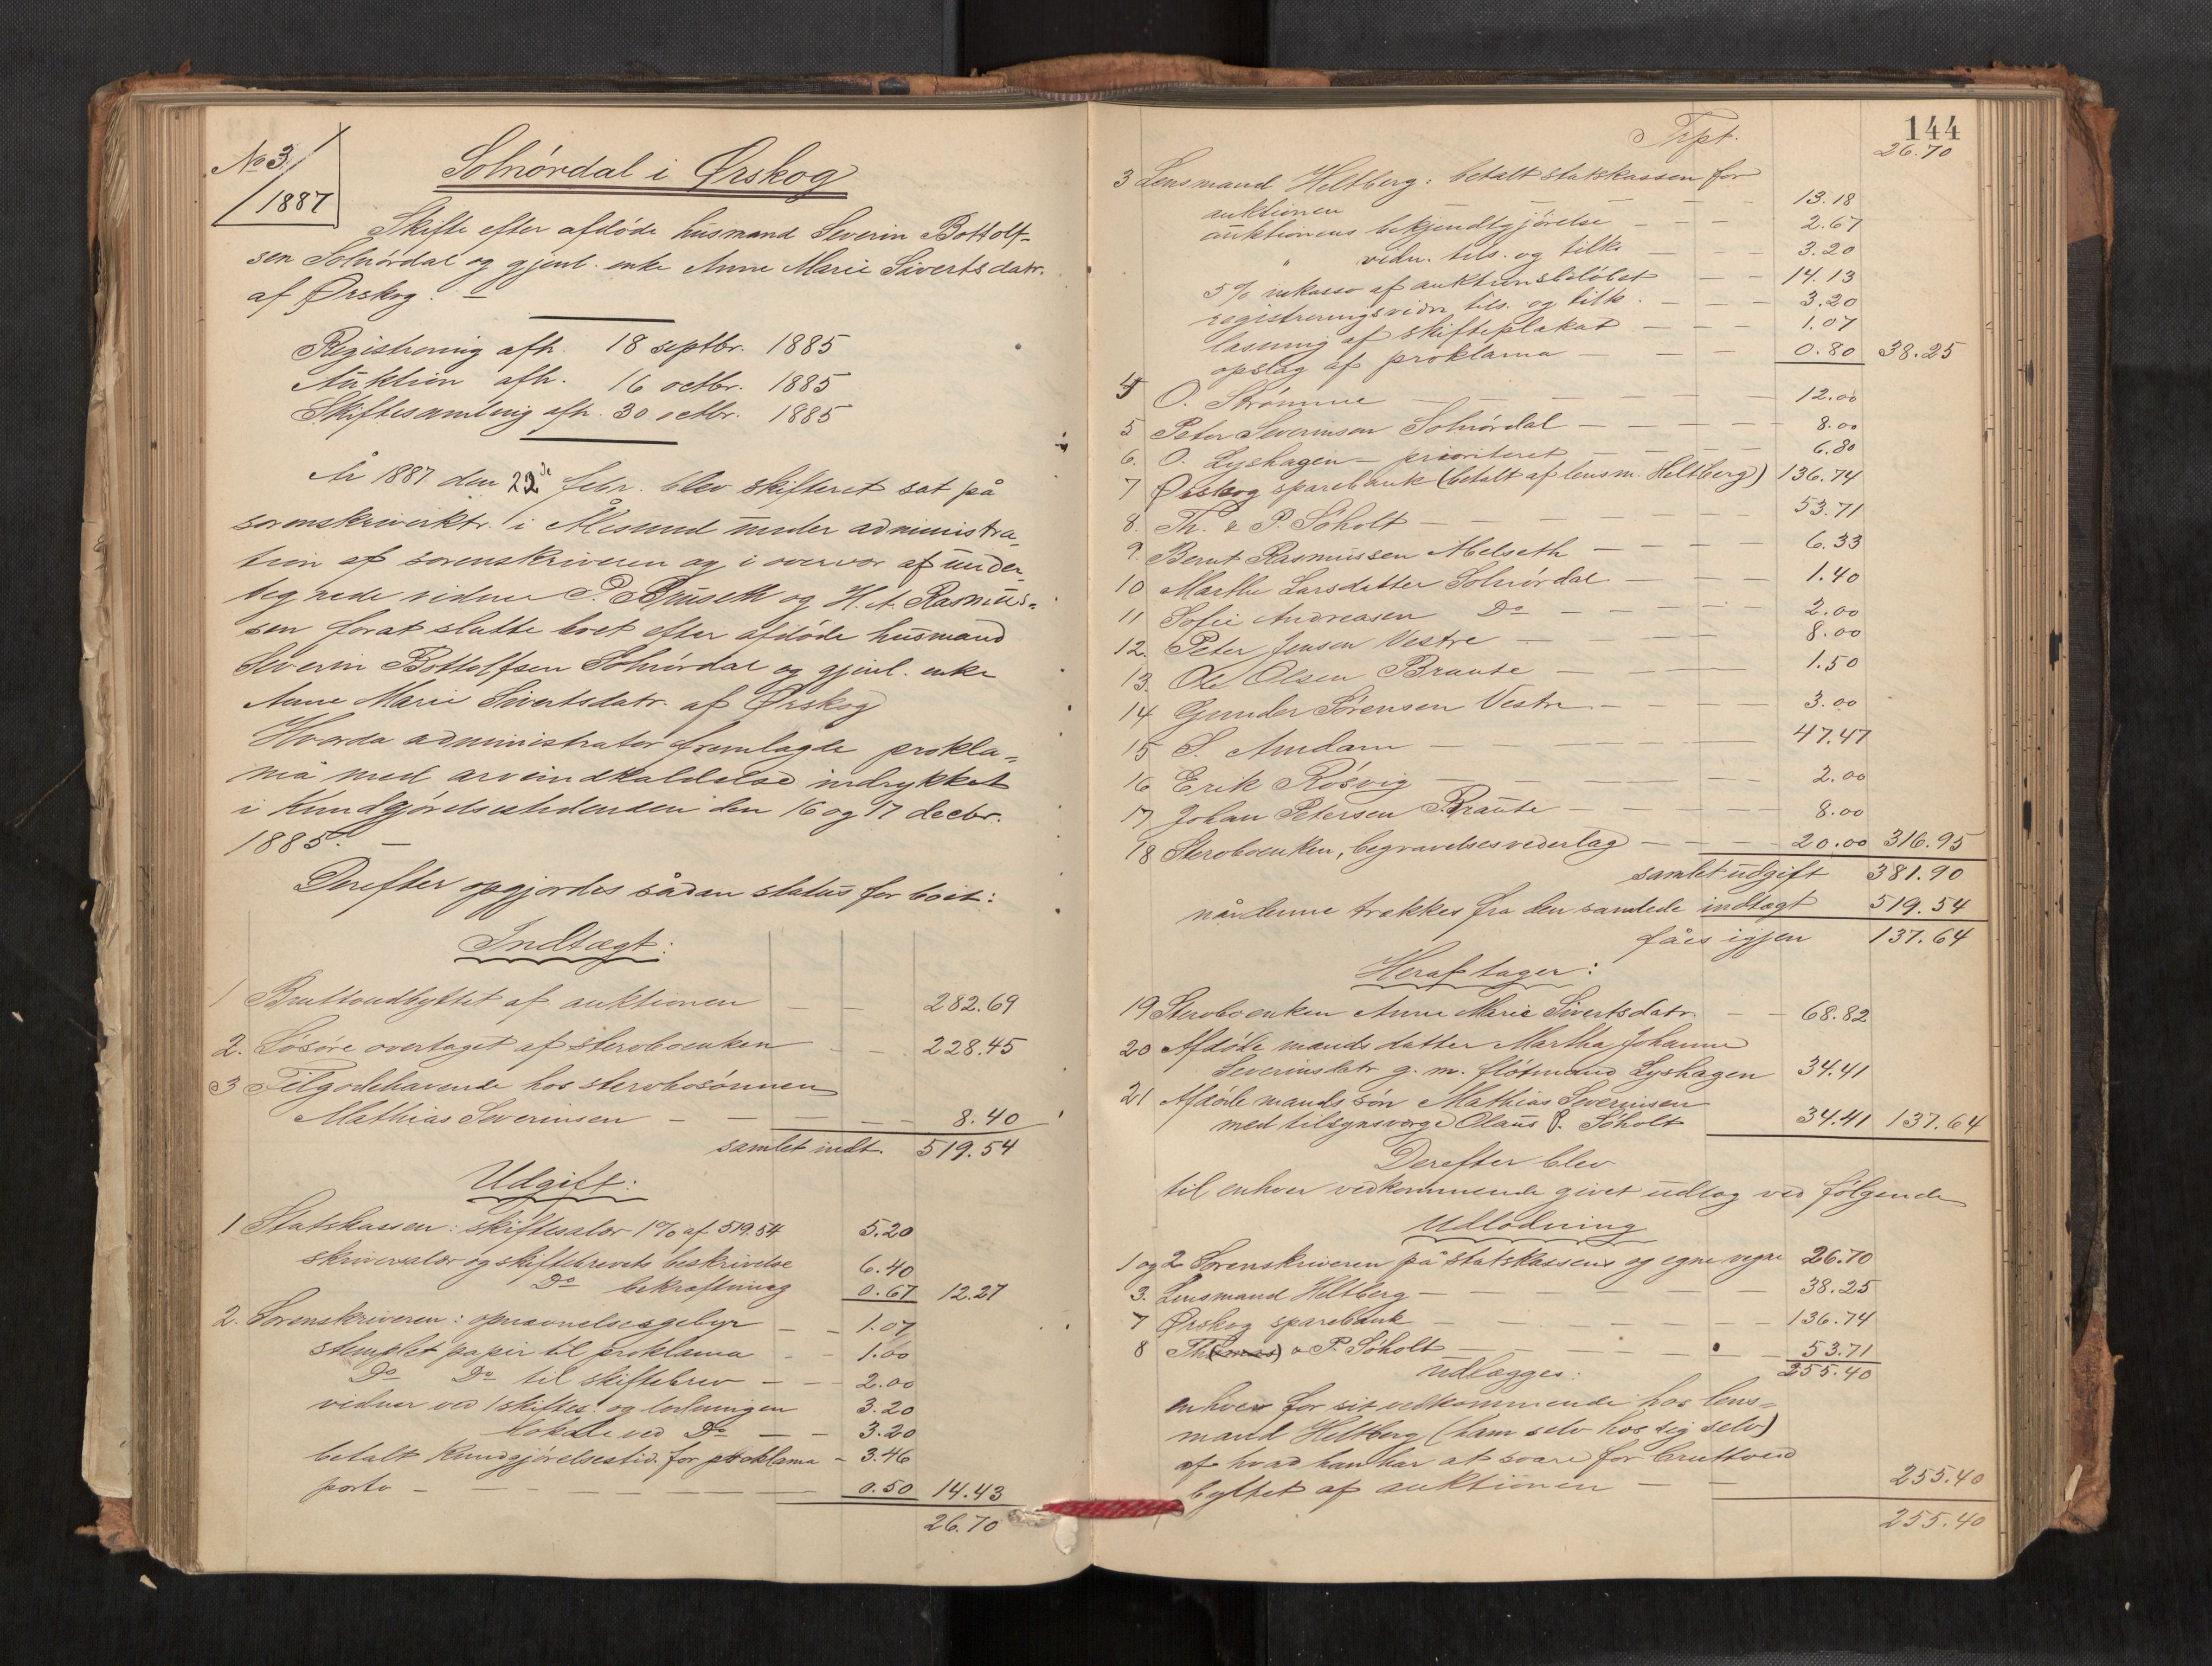 No 3
1887
Solnørdal i Ørskog
Skifte efter afdøde husmand Severin Bottolf-
sen Solnørdal og gjenl. enke Anne Marie Sivertsdatr.
af Ørskog. —
Registrering afh. 18 septbr. 1885
Auktion afh. 16 octbr. 1885
Skiftesamling afh. 30 octbr. 1885
År 1887 den 22de febr. blev skifteret sat på
sorenskriverktr. i Ålesund under administra-
tion af sorenskriveren og i overvær af under-
tegnede vidner P. Bruseth og H. A. Rasmus-
sen forat slutte boet efter afdøde husmand
Severin Bottolfsen Solnørdal og gjenl. enke
Anne Marie Sivertsdatr. af Ørskog
Hvorda administrator fremlagde prokla-
ma med arveindkaldelse indrykket
i Kundgjørelsestidenden den 16 og 17 decbr.
1885. —
Derefter opgjordes sådan status for boet:
Indtægt:
1 Bruttoudbyttet af auktionen — — 282.69
2. Løsøre overtaget af sterboenken — — 228.45
3 Tilgodehavende hos sterbosønnen
Mathias Severinsen — — — 8.40
samlet indt. 519.54
Udgift:
1 Statskassen: skiftesalær 1% af 519.54 5.20
skriversalær og skiftebrevets beskrivelse 6.40
Do bekræftning 0.67 12.27
2. Sorenskriveren: opnævnelsesgebyr — — 1.07
stemplet papir til proklama — — 1.00
Do Do til skiftebrev — — 2.00
vidner ved skiftes. og lodningen 3.20
lokale ved Do — — 3.20
betalt Kundgjørelsestid. for proklama — 3.46
porto — — — — — 0.50 14.43
26.70
144
Trpt. 26.70
3 Lensmand Heltberg: betalt statskassen for
auktionen — — — — 13.18
auktionens bekjendtgjørelse — — — 2.67
" vidn. tils. og tilk. — — — 3.20
5% inkasso af auktionsbeløbet — — 14.13
registreringsvidn. tils. og tilk. — — — 3.20
læsning af skifteplakat — — — 1.07
opslag af proklama — — — 0.80 38.25
4 O. Strømme — — — — — 12.00
5 Peter Severinsen Solnørdal — — — — 8.00
6. O. Lyshagen — prioriteret — — — — 6.80
7 Ørskog sparebank (betalt af lensm. Heltberg) 136.74
8. Th. & P. Søholt — — — — — 53.71
9. Bernt Rasmussen Abelseth — — — — 6.33
10 Marthe Larsdatter Solnørdal — — — 1.40
11 Sofie Andreasen Do — — — — 2.00
12. Peter Jensen Vestre — — — — 8.00
13. Ole Olsen Braute — — — — 1.50
14 Gunder Sørensen Vestre — — — — 3.00
15 S. Amdam — — — — — 47.47
16 Erik Røsvig — — — — — 2.00
17 Johan Petersen Braute — — — — 8.00
18 Sterboenken, begravelsesvederlag — — — 20.00 316.95
samlet udgift 381.90
når denne trækkes fra den samlede indtægt 519.54
fåes igjen 137.64
Heraf tager:
19 Sterboenken Anne Marie Sivertsdatr. — — 68.82
20 Afdøde mands datter Martha Johanne
Severinsdatr g. m. Lyshagen 34.41
21 Afdøde mands søn Mathias Severinsen
med tilsynsværge Olaus P. Søholt 34.41 137.64
Derefter blev
til enhver vedkommende givet udlæg ved følgende
Udlodning
1 og 2 Sorenskriveren på statskassens og egne vegne 26.70
3. Lensmand Heltberg — — — — — 38.25
7 Ørskog sparebank — — — — — 136.74
8 Th(omas) & P. Søholt — — — — 53.71
udlægges: 255.40
enhver for sit vedkommende hos lens-
mand Heltberg (ham selv hos sig selv)
af hvad han har at svare for bruttoud
byttet af auktionen — — 255.40
255.40